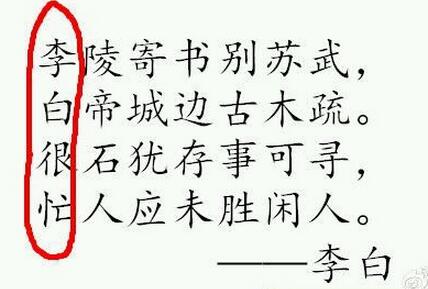 李陵寄书别苏武，
白帝城边古木疏。
很石犹存事可寻，
忙人应未胜闲人。
——李白